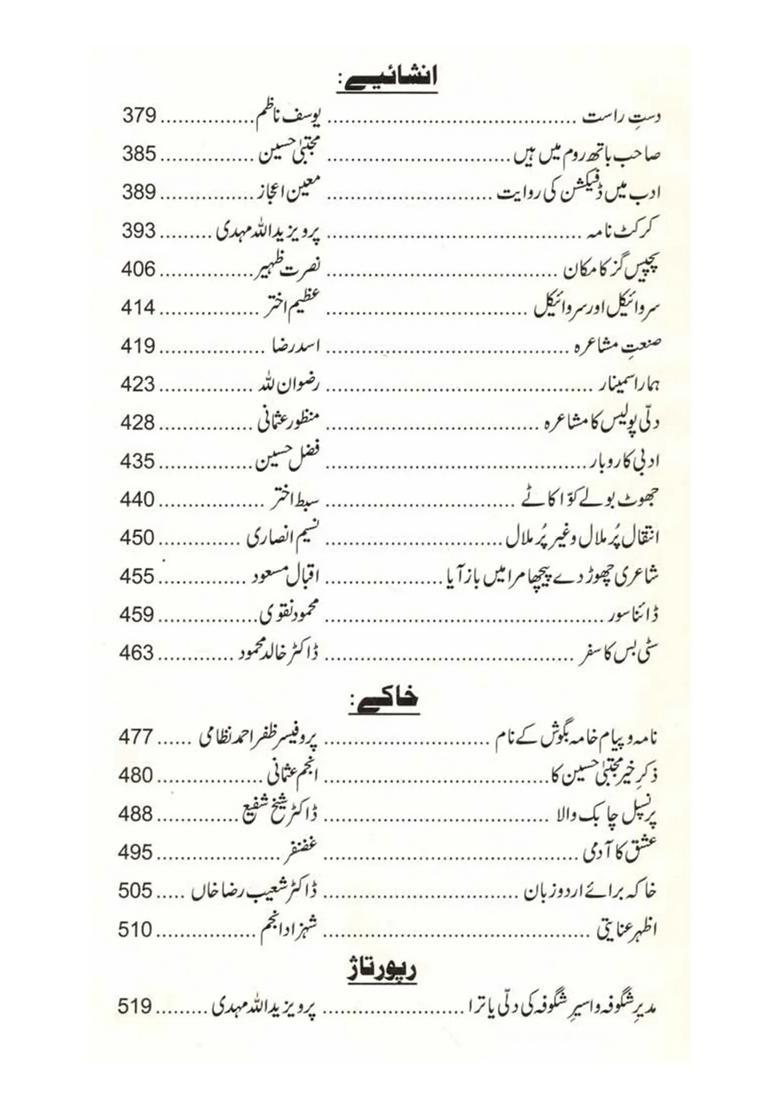 انشائیے:
دستِ راست ........................................ یوسف ناظم ............... 379
صاحب باتھ روم میں ہیں ............................. مجتبیٰ حسین ............... 385
ادب میں ڈفیکشن کی روایت .......................... معین اعجاز ............... 389
کرکٹ نامہ ........................................ پرویز ید اللہ مہدی ......... 393
پچیس گز کا مکان .................................... نصرت ظہیر ............... 406
سروائیکل اور سروائیکل ................................ عظیم اختر ................ 414
صنعتِ مشاعرہ ...................................... اسد رضا ................. 419
ہمارا سمینار ......................................... رضوان للہ ................ 423
دلّی پولیس کا مشاعرہ ................................. منظور عثمانی ............... 428
ادبی کاروبار ........................................ فضل حسین ............... 435
جھوٹ بولے کوّا کاٹے ............................... سبط اختر ................. 440
انتقال پُر ملال و غیر پُر ملال ............................ نسیم انصاری .............. 450
شاعری چھوڑ دے پیچھا مرا میں باز آیا .................... اقبال مسعود .............. 455
ڈائناسور ........................................... محمود نقوی ............... 459
سٹی بس کا سفر ...................................... ڈاکٹر خالد محمود ............ 463
خاکے:
نامہ و پیام خامہ بگوش کے نام .......................... پروفیسر ظفر احمد نظامی ...... 477
ذکرِ خیر مجتبیٰ حسین کا .................................. انجم عثمانی ................ 480
پرنسپل چابک والا .................................... ڈاکٹر شیخ شفیع ............. 488
عشق کا آدمی ........................................ غضنفر ................... 495
خاکہ برائے اردو زبان ................................ ڈاکٹر شعیب رضا خاں ..... 505
اظہر عنایتی .......................................... شہزاد انجم ................ 510
رپورتاژ
مدیرِ شگوفہ و اسیرِ شگوفہ کی دلّی یاترا ...................... پرویز ید اللہ مہدی ......... 519